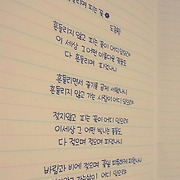 흔들리며 피는 꽃
도종환
흔들리지 않고 피는 꽃이 어디 있으랴
이 세상 그 어떤 아름다운 꽃들도
다 흔들리며 피었나니
흔들리면서 줄기를 곧게 세웠나니
흔들리지 않고 가는 사랑이 어디 있으랴
젖지 않고 피는 꽃이 어디 있으랴
이 세상 그 어떤 빛나는 꽃들도
다 젖으며 젖으며 피었나니
바람과 비에 젖으며 꽃잎 따뜻하게 피웠나니
젖지 않고 가는 삶이 어디 있으랴